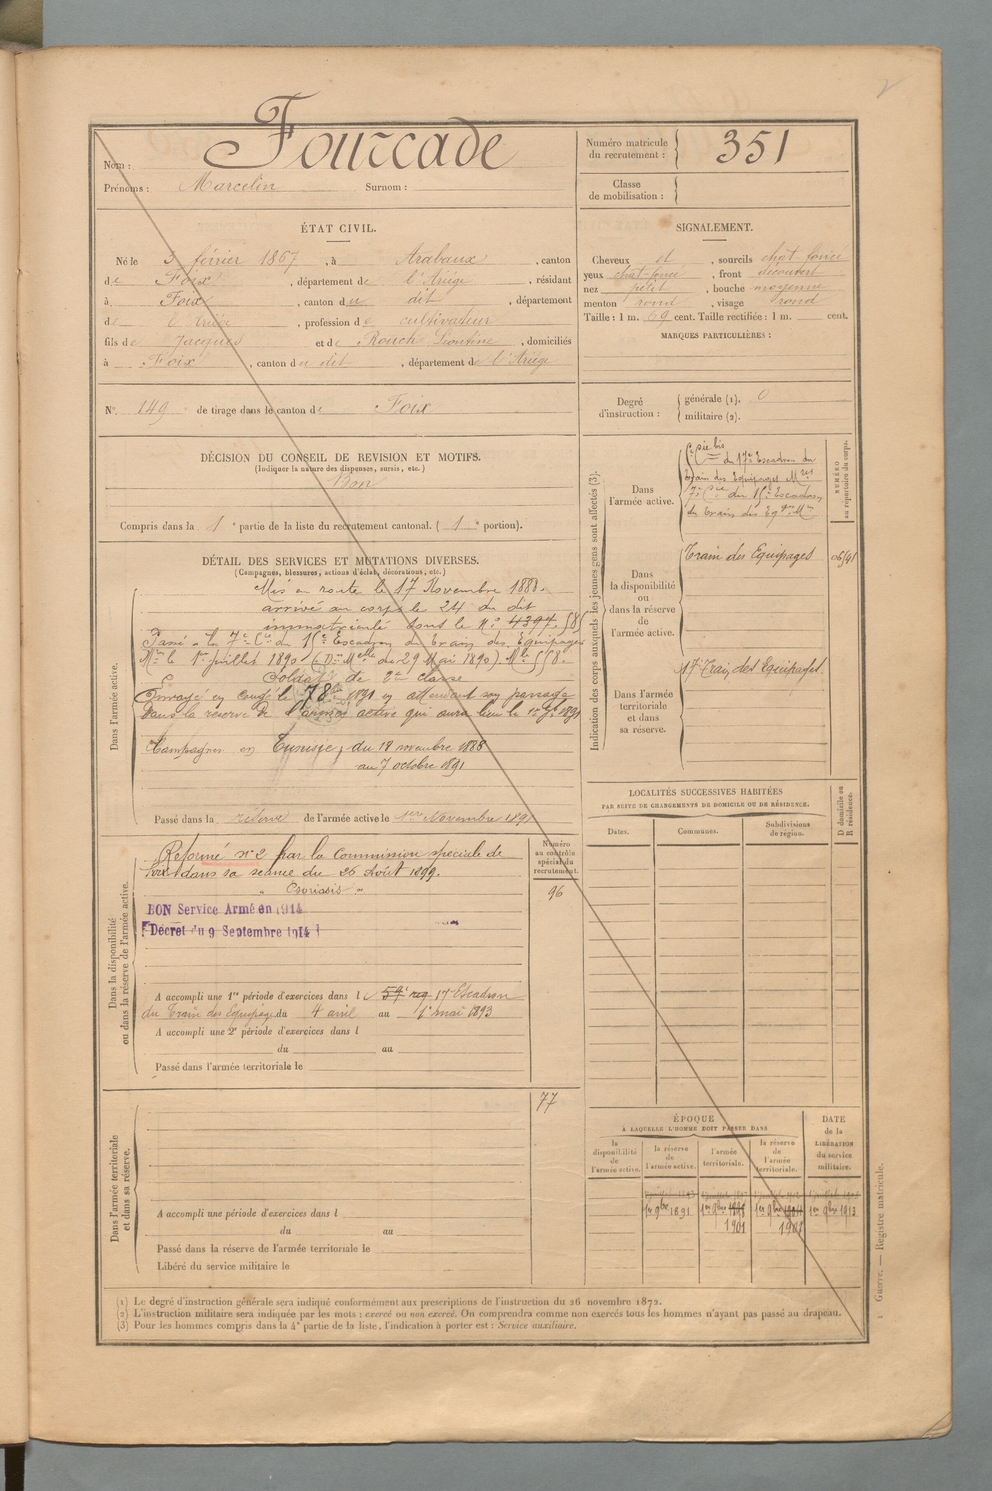 2
Nom : Fourcade
Prénoms : Marcelin Surnom :
Numéro matricule du recrutement : 351
Classe de mobilisation :
ÉTAT CIVIL.
Né le 3 février 1867, à Arabaux, canton
de Foix, département de l'Ariége, résidant
à Foix, canton du dit, département
de l'Ariége, profession de cultivateur
fils de Jacques et de Rouch Léontine, domiciliés
à Foix, canton du dit, département de l'Ariége
N° 149 de tirage dans le canton de Foix
SIGNALEMENT.
Cheveux et, sourcils chat. foncé
yeux chat-foncé, front découvert
nez petit, bouche moyenne
menton rond, visage rond
Taille : 1 m. 69 cent. Taille rectifiée : 1 m. cent.
MARQUES PARTICULIÈRES :
Degré d'instruction :
générale (1). 0
militaire (2).
DÉCISION DU CONSEIL DE REVISION ET MOTIFS.
(Indiquer la nature des dispenses, sursis, etc.)
Bon
Compris dans la 1e partie de la liste du recrutement cantonal. ( 1e portion).
DÉTAIL DES SERVICES ET MUTATIONS DIVERSES.
(Campagnes, blessures, actions d'éclat, décorations, etc.)
Dans l'armée active.
Mis en route le 17 Novembre 1888.
arrivé au corps le 24 du dit
immatriculé sous le N° 4397.
Passé à la 7e Cie du 15e Escadron du Train des Equipages
Mres le 1er juillet 1890 (Don Melle du 29 Mai 1890). Mle 558.
Soldat de 2e classe
Envoyé en congé le 7 8bre 1891 en attendant son passage
dans la réserve de l'armée active qui aura lieu le 1er 9bre 1891
Campagnes en Tunisie, du 18 novembre 1888
au 7 octobre 1891
Passé dans la réserve de l'armée active le 1er Novembre 1891
Dans la disponibilité ou dans la réserve de l'armée active.
Numéro au contrôle spécial du recrutement.
96
Réformé n° 2 par la Commission spéciale de
Foix dans sa séance du 26 Août 1899.
" Psoriasis "
BON Service Armé en 1914
Décret du 9 Septembre 1914
A accompli une 1re période d'exercices dans l e 59e reg 17e Escadron
du Train des Equipages du 4 avril au 1er mai 1893
A accompli une 2e période d'exercices dans l
du au
Passé dans l'armée territoriale le
Dans l'armée territoriale et dans sa réserve.
77
A accompli une période d'exercices dans l
du au
Passé dans la réserve de l'armée territoriale le
Libéré du service militaire le
Indication des corps auxquels les jeunes gens sont affectés (3).
NUMÉRO au répertoire du corps.
Dans l'armée active.
Cie bis
du 17e Escadron du
Train des Equipages Mres
7e Cie du 15e Escadron
du Train des Eqges Mres
Dans la disponibilité ou dans la réserve de l'armée active.
Train des Equipages 06/41
Dans l'armée territoriale et dans sa réserve.
17e Train des Equipages.
LOCALITÉS SUCCESSIVES HABITÉES
PAR SUITE DE CHANGEMENTS DE DOMICILE OU DE RÉSIDENCE.
Dates. Communes. Subdivisions de région. D domicile ou R résidence.
ÉPOQUE
À LAQUELLE L'HOMME DOIT PASSER DANS
DATE de la LIBÉRATION du service militaire.
la disponibilité de l'armée active. la réserve de l'armée active. l'armée territoriale. la réserve de l'armée territoriale.
1er 9bre 1891 1er 9bre 1901 1er 9bre 1907 1er 9bre 1913
(1) Le degré d'instruction générale sera indiqué conformément aux prescriptions de l'instruction du 26 novembre 1872.
(2) L'instruction militaire sera indiquée par les mots : exercé ou non exercé. On comprendra comme non exercés tous les hommes n'ayant pas passé au drapeau.
(3) Pour les hommes compris dans la 4e partie de la liste, l'indication à porter est : Service auxiliaire.
Guerre. — Registre matricule.